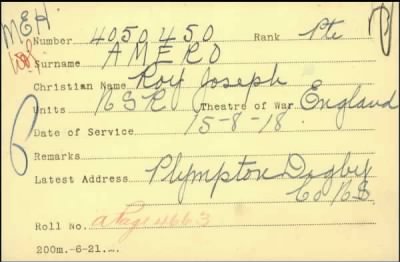 MEH
Number 4050450 Rank Pte
Surname AMERO
Christian Name Roy Joseph
Units NSR Theatre of War England
Date of Service 15-8-18.
Remarks
Latest Address Plympton Dogby
Co NS
Roll No. a Page 4663
200m.-6-21.